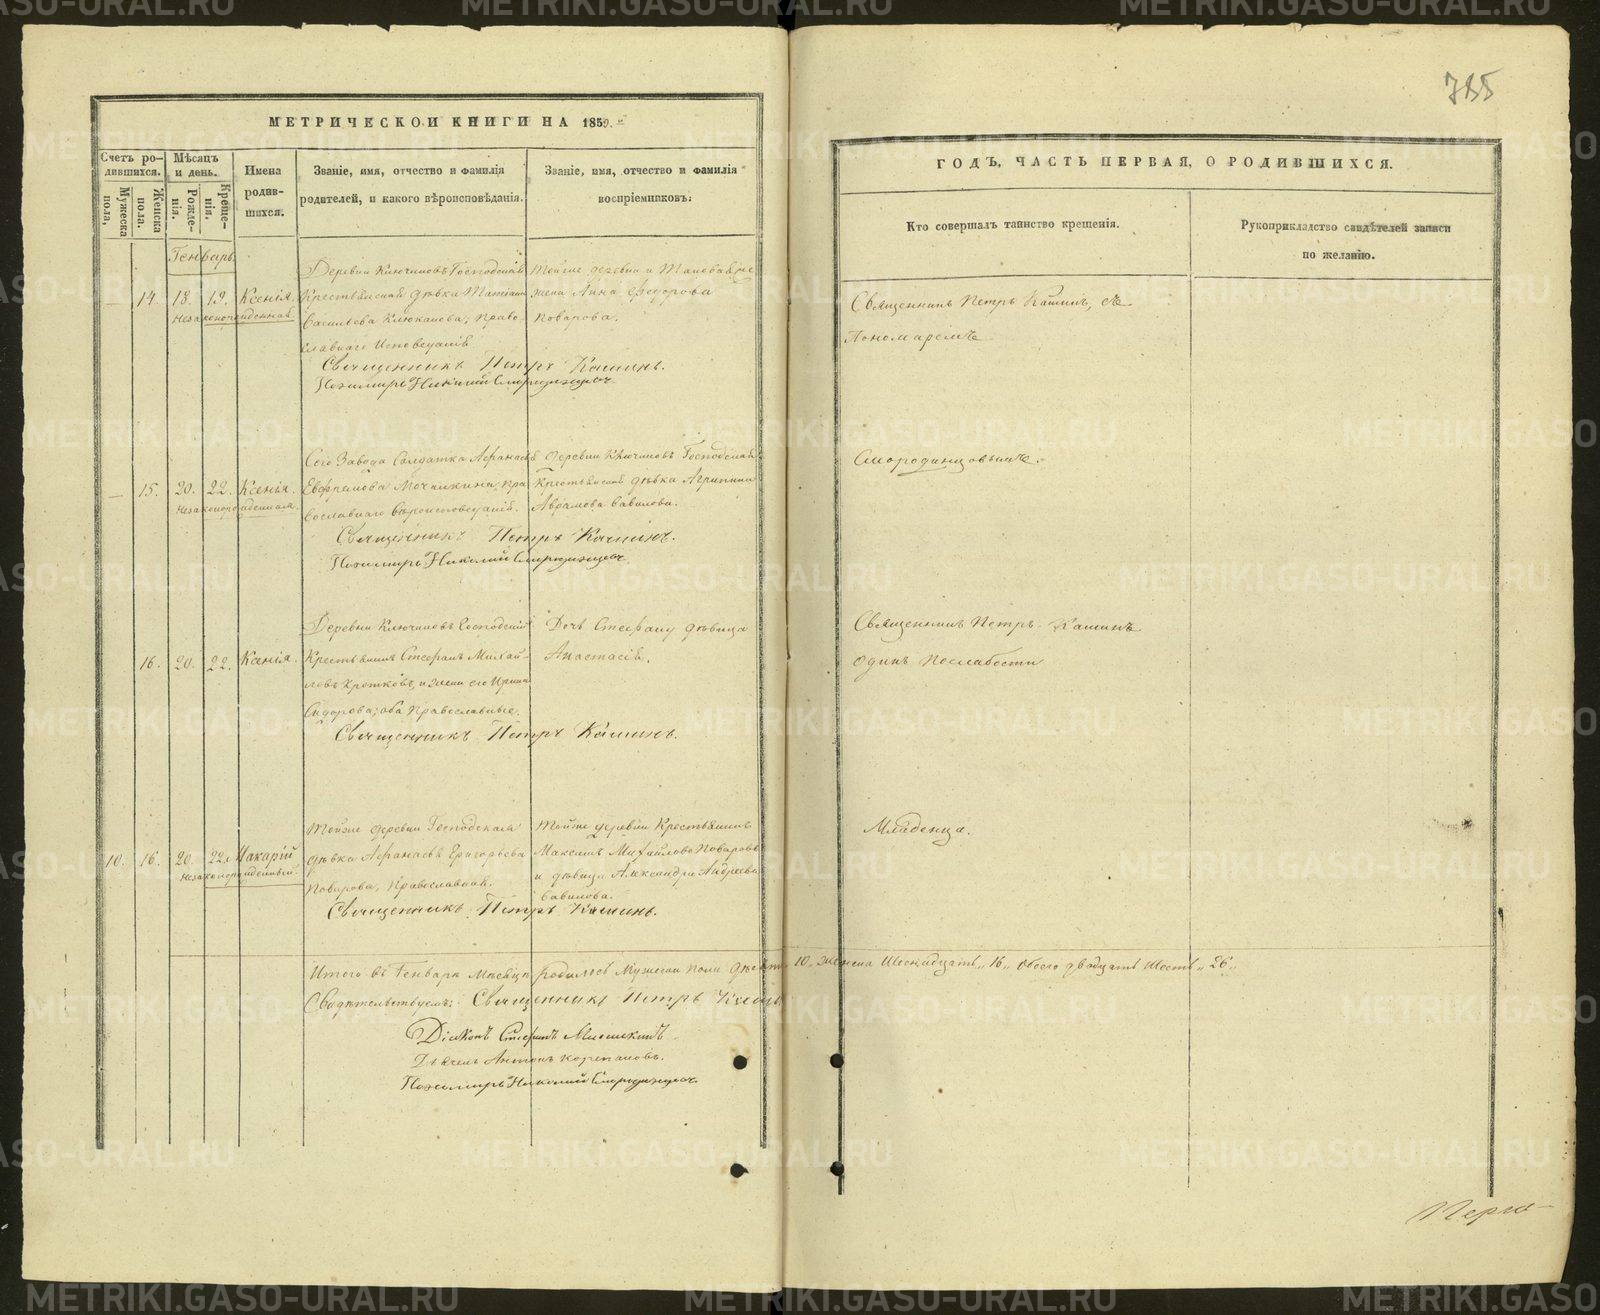 755
МЕТРИЧЕСКОЙ КНИГИ НА 1859.
Счетъ ро-
дившихся.
Мужеска
пола.
Женска
пола.
Мѣсяцъ
и день.
Рожде-
нія.
Креще-
нія.
Имена
родив-
шихся.
Званіе, имя, отчество и фамилія
родителей, и какого вѣроисповѣданія.
Званіе, имя, отчество и фамилія
воспріемниковъ.
Генварь
14. 18. 19. Ксенія.
Незаконорожденная
Деревни Ключиковъ Господская
Крестьянская дѣвка
Васильева Клюкина, Право-
славнаго Исповеданія
жена Анна Федорова
Поварова.
Священникъ Петръ Кашинъ.
Пономарь Николай Смородинцовъ
15. 20. 22. Ксенія.
Незаконорожденная.
Сего Завода Солдатка
Евфремова Мочалкина, пра-
вославнаго вѣроисповеданія.
деревни Ключиковъ Господская
Крестьянская дѣвка Агрипина
Аврамова Вавилова.
Священникъ Петръ Кашинъ.
Пономарь Николай Смородинцовъ
16. 20. 22. Ксенія.
Деревни Ключиковъ Господскій
Крестьянинъ Стефанъ Михай-
ловъ Кротковъ, и жена его Ирина
Сидорова; оба Православные.
Дочь Стефану дѣвица
Анастасія.
Священникъ Петръ Кашинъ.
10. 16. 20. 22. Макарій
Незаконорожденный.
Тойже деревни Господская
дѣвка Григорьева
Поварова, Православная.
Тойже деревни Крестьянинъ
Максимъ Михайловъ Поваровъ
и дѣвица Александра Андреева
Вавилова.
Священникъ Петръ Кашинъ.
Итого въ Генварѣ Мѣсяцѣ родилось Мужеска пола десять 10 женска Шеснадцать 16 Обоего двадцать шесть 26
Свидѣтельствуемъ: Священникъ Петръ Кашинъ
Діаконъ Стефанъ
Дьячекъ Антонъ Корепановъ.
Пономарь Николай Смородинцовъ.
ГОДЪ, ЧАСТЬ ПЕРВАЯ, О РОДИВШИХСЯ.
Кто совершалъ таинство крещенія.
Рукоприкладство свидѣтелей записи
по желанію.
Священникъ Петръ Кашинъ, съ
Пономаремъ
Смородинцовымъ.
Священникъ Петръ Кашинъ
одинъ послабости
Младенца.
METRIKI.GASO-URAL.RU